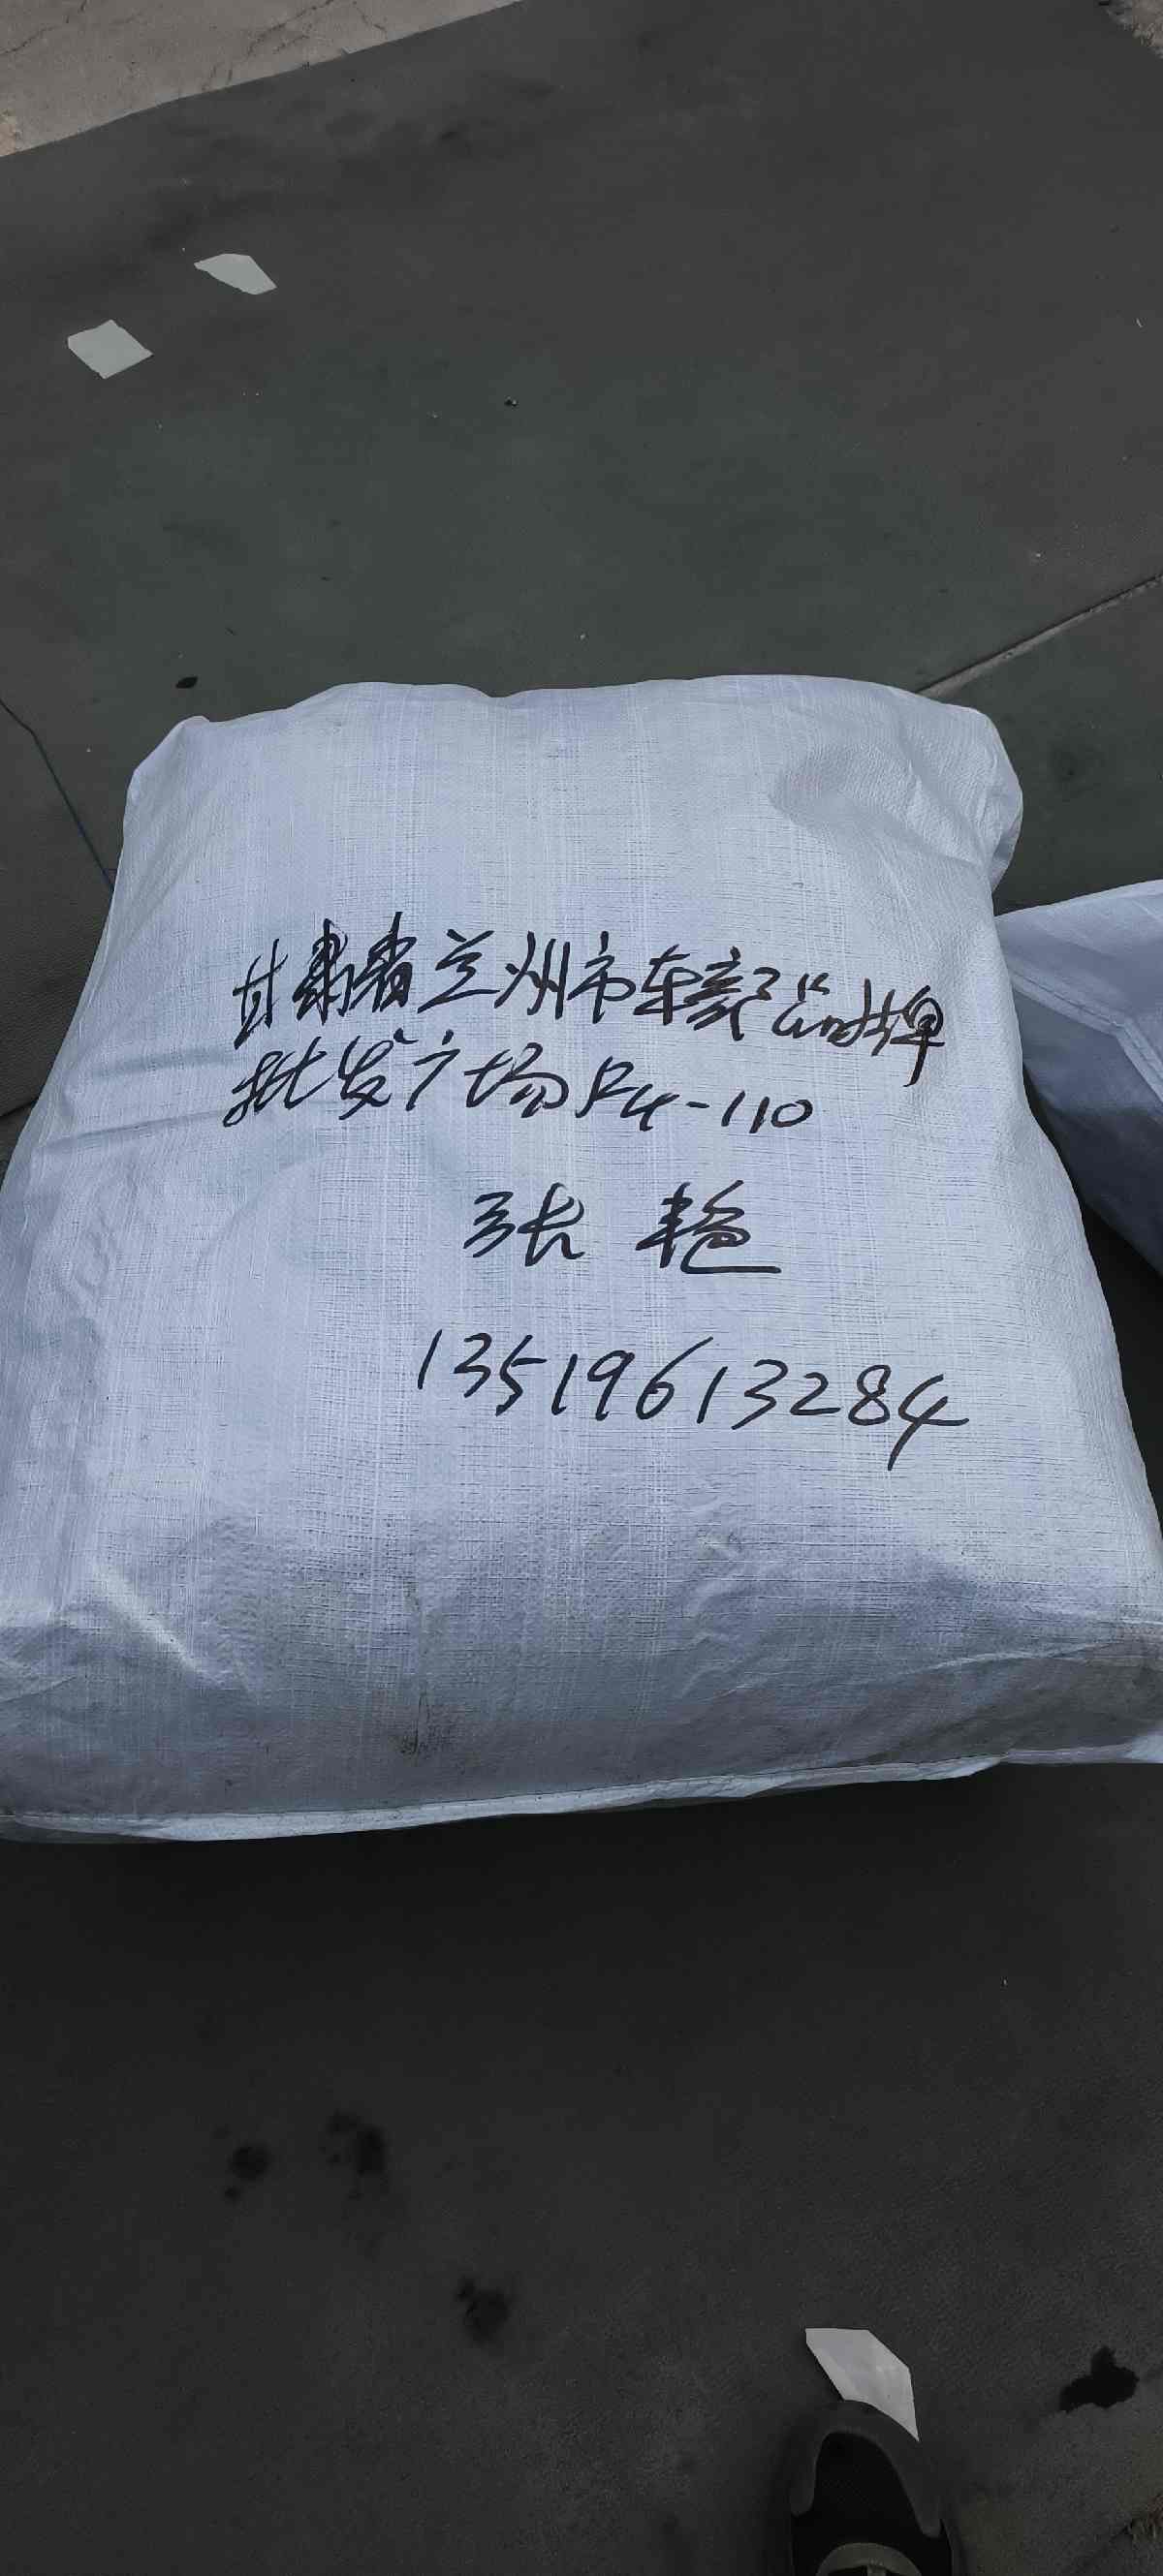 甘肃省兰州市东部品牌
批发广场F4-110
张艳
13519613284